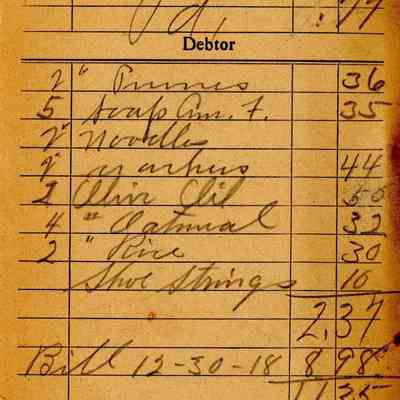 Pd. .77
Debtor
2 " Prunes 36
5 Soap Am. F. 35
2 " Noodles
2 " 44
2 Olive Oil 50
4 " Oatmeal 32
2 " Rice 30
Shoe Strings 10
2.37
Bill 12-30-18 8 98
11 35